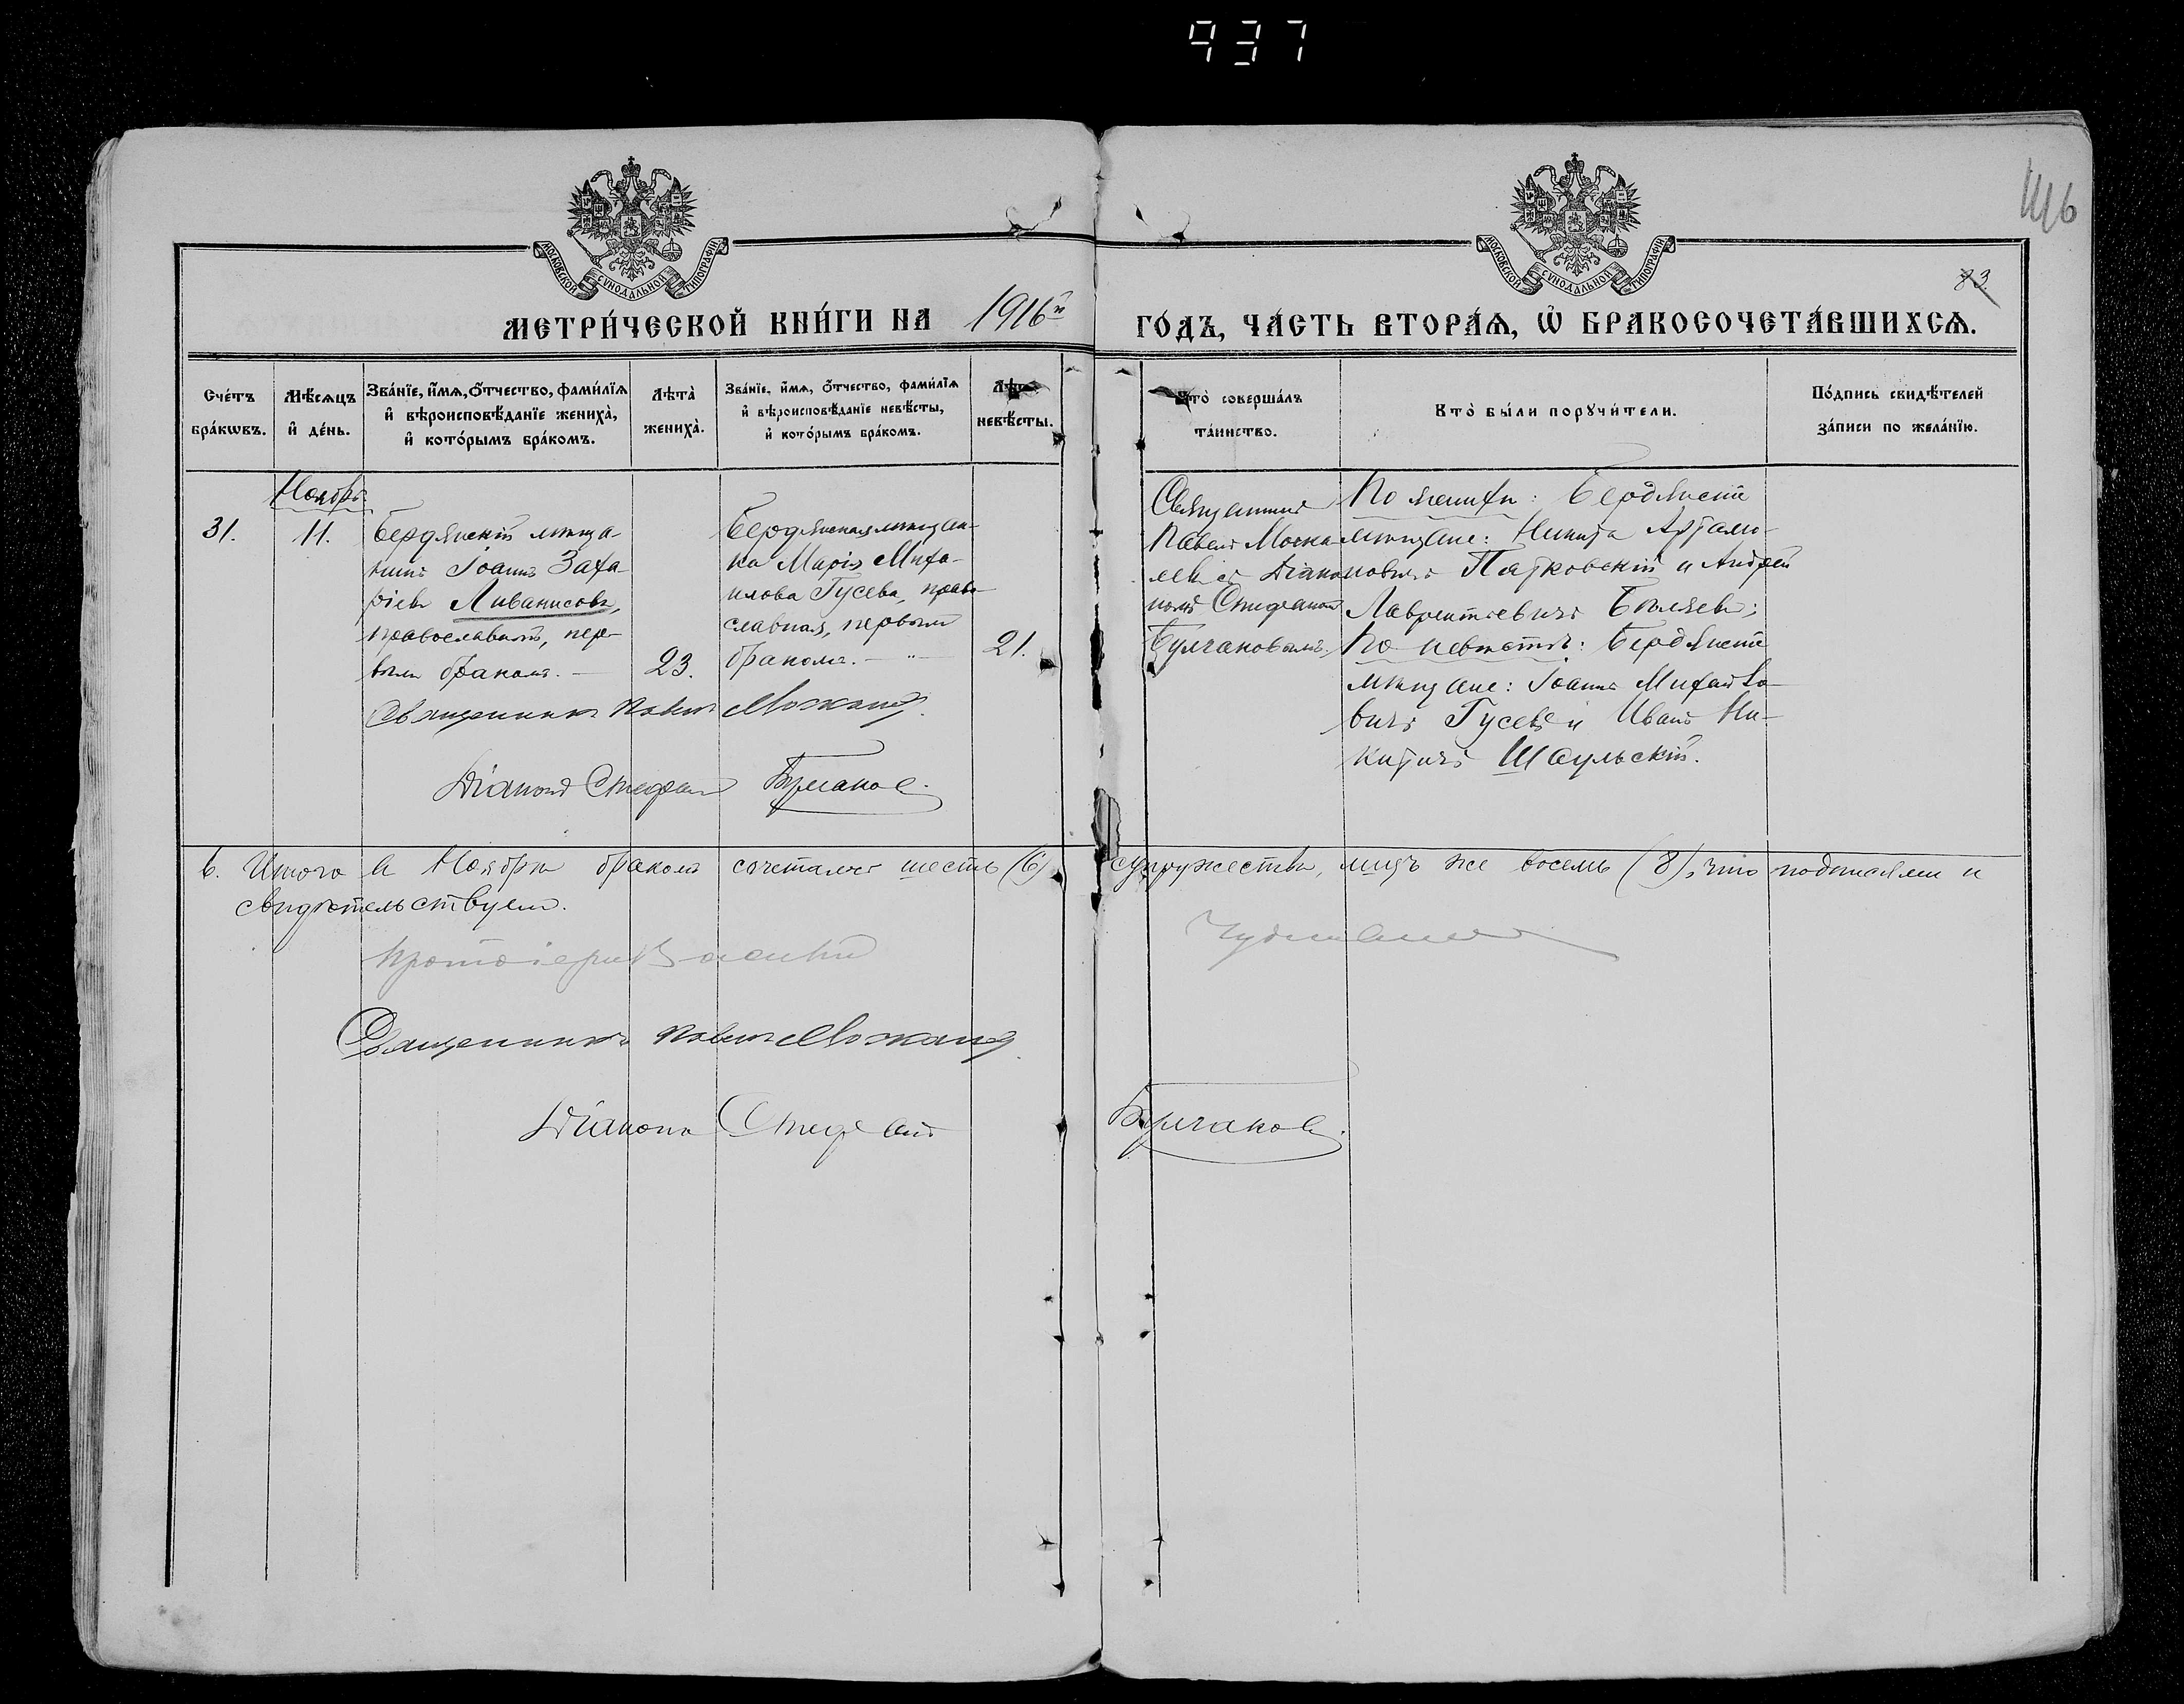 937
Щ6
83.
МОСКОВСКОЙ СѴНОДАЛЬНОЙ ТИПОГРАФІИ
МОСКОВСКОЙ СѴНОДАЛЬНОЙ ТИПОГРАФІИ
МЕТРИ́ЧЕСКОЙ КНИ́ГИ НА 1916й ГО́ДЪ, ЧА́СТЬ ВТОРА́Ѧ, Ѽ БРАКОСОЧЕТА́ВШИХСѦ.
Сче́тъ бра́кѡвъ.
Мѣ́сѧцъ и҆ де́нь.
Зва́нїе, и҆́мѧ, ѻ҆́тчество, фами́лїѧ
и҆ вѣроисповѣ́данїе жениха̀,
и҆ кото́рымъ бра́комъ.
Лѣта̀ жениха̀.
Зва́нїе, и҆́мѧ, ѻ҆́тчество, фами́лїѧ
и҆ вѣроисповѣ́данїе невѣ́сты,
и҆ кото́рымъ бра́комъ.
Лѣта̀ невѣ́сты.
Кто̀ соверша́лъ
та́инство.
Кто̀ бы́ли порꙋчи́тели.
По́дпись свидѣ́телей
за́писи по жела́нїю.
Ноябрь
31.
11.
Бердянскій мѣща-
нинъ Іоаннъ Заха-
ріевъ Ливанисовъ,
православный, пер-
вымъ бракомъ. —
23.
Бердянская мѣщан-
ка Марія Миха-
илова Гусева, право-
славная, первымъ
бракомъ. — " —
21.
Священникъ
Павелъ
съ Діако-
номъ Стефаномъ
Булгаковымъ.
По женихѣ: Бердянскіе
мѣщане: Никита Артамо-
новичъ Патковскій и Андрей
Лаврентіевичъ Бѣляевъ;
По невѣстѣ: Бердянскіе
мѣщане: Іоаннъ Михайло-
вичъ Гусевъ и Иванъ Ни-
китичъ Шаульскій.
Священникъ Павелъ
Діаконъ Стефанъ Булгаковъ.
6. Итого въ Ноябрѣ бракомъ сочеталось шесть (6) супружествъ, лицъ же восемь (8), что подписами и
свидѣтельствуемъ.
Протоіерей Василій
Священникъ Павелъ
Діаконъ Стефанъ Булгаковъ.